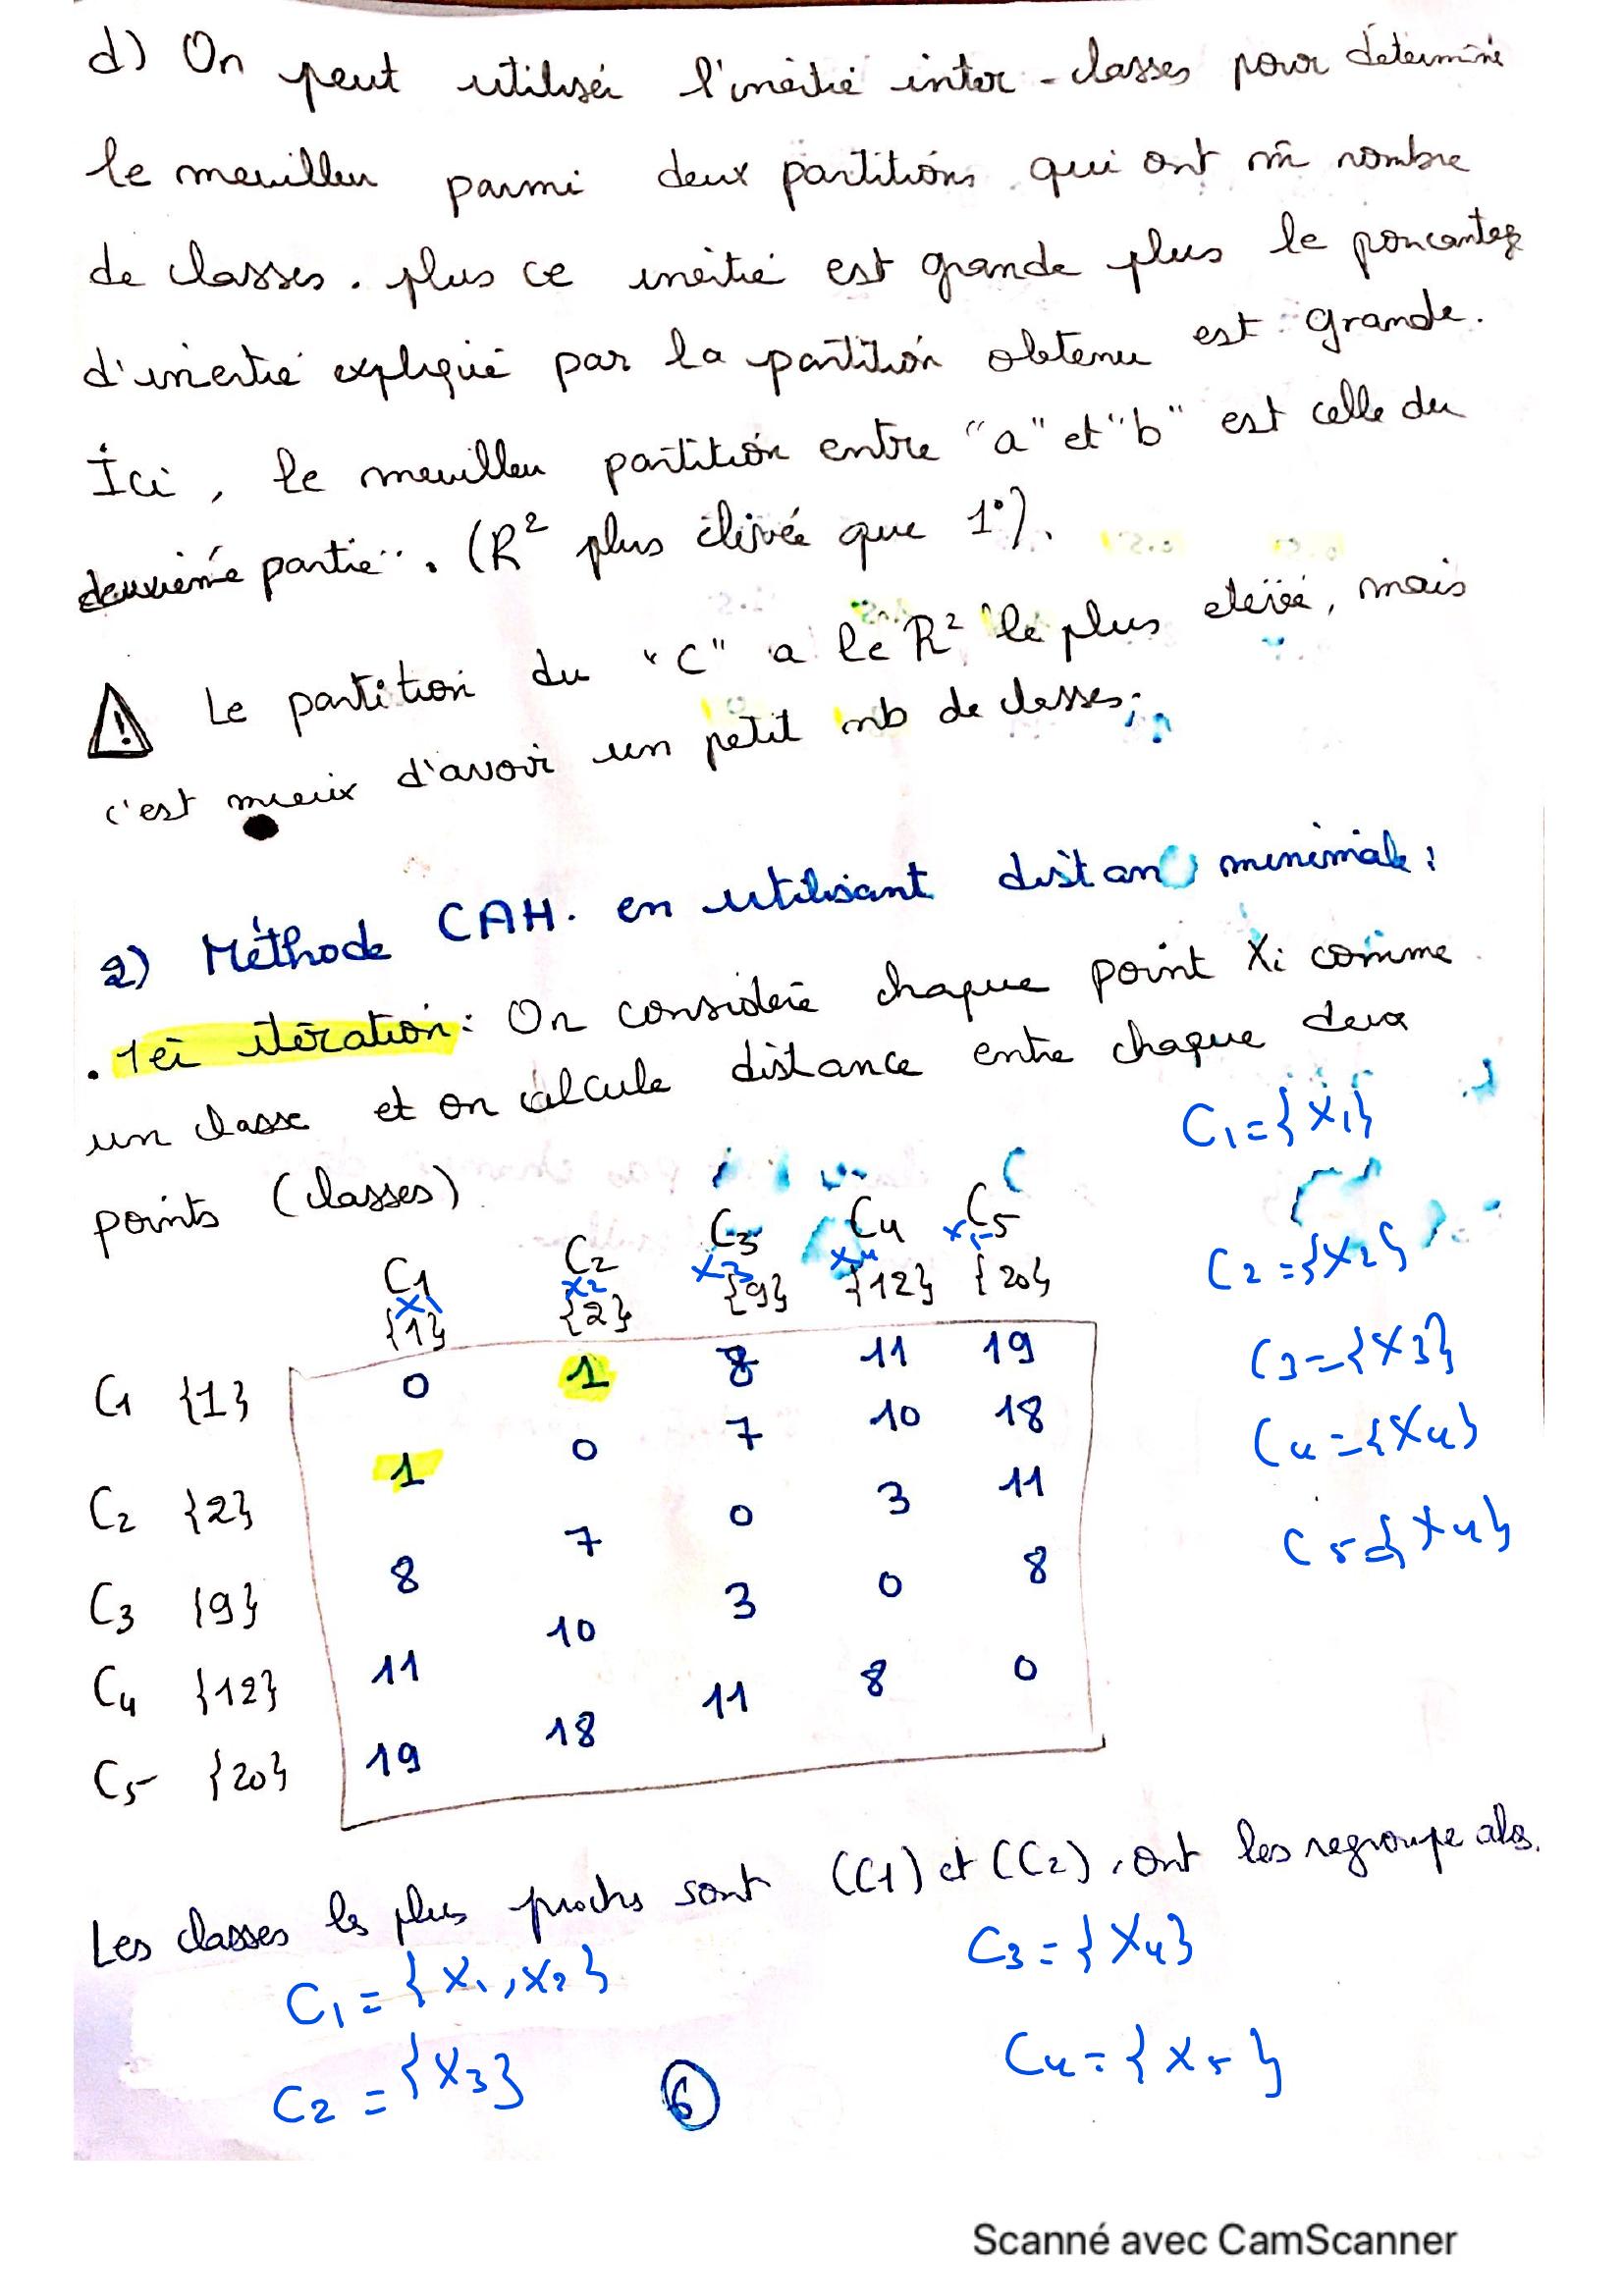 d) On peut utilisér l'inértie inter-classes pour détermine
le meuilleu parmi deux partitions qui ont m̄ nombre
de classes. plus ce inértie est grande plus le pourcantag
d'inertie expliquée par la partition obtenu est grande.
Ici, le meuilleu partition entre "a" et "b" est celle du
deuxiéme partie. (R² plus élevée que 1°).
⚠ Le partition du "C" a le R² le plus elevée, mais
c'est mieux d'avoir un petit nb de classes;
2) Méthode CAH. en utilisant distan minimale:
. 1er itération: On considére chaque point Xi comme
un classe et on calcule distance entre chaque deux
points (classes)
C1={X1}
C2={X2}
C3={X3}
C4={X4}
C5={X4}
C1 C2 C3 C4 C5
X1 X2 X3 X4 X5
{1} {2} {9} {12} {20}
C1 {1} 0 1 8 11 19
C2 {2} 1 0 7 10 18
C3 {9} 8 7 0 3 11
C4 {12} 11 10 3 0 8
C5 {20} 19 18 11 8 0
Les classes les plus prochs sont (C1) et (C2), ont les regroupe als.
C1={X1,X2} C3={X4}
C2={X3} C4={X5}
6
Scanné avec CamScanner